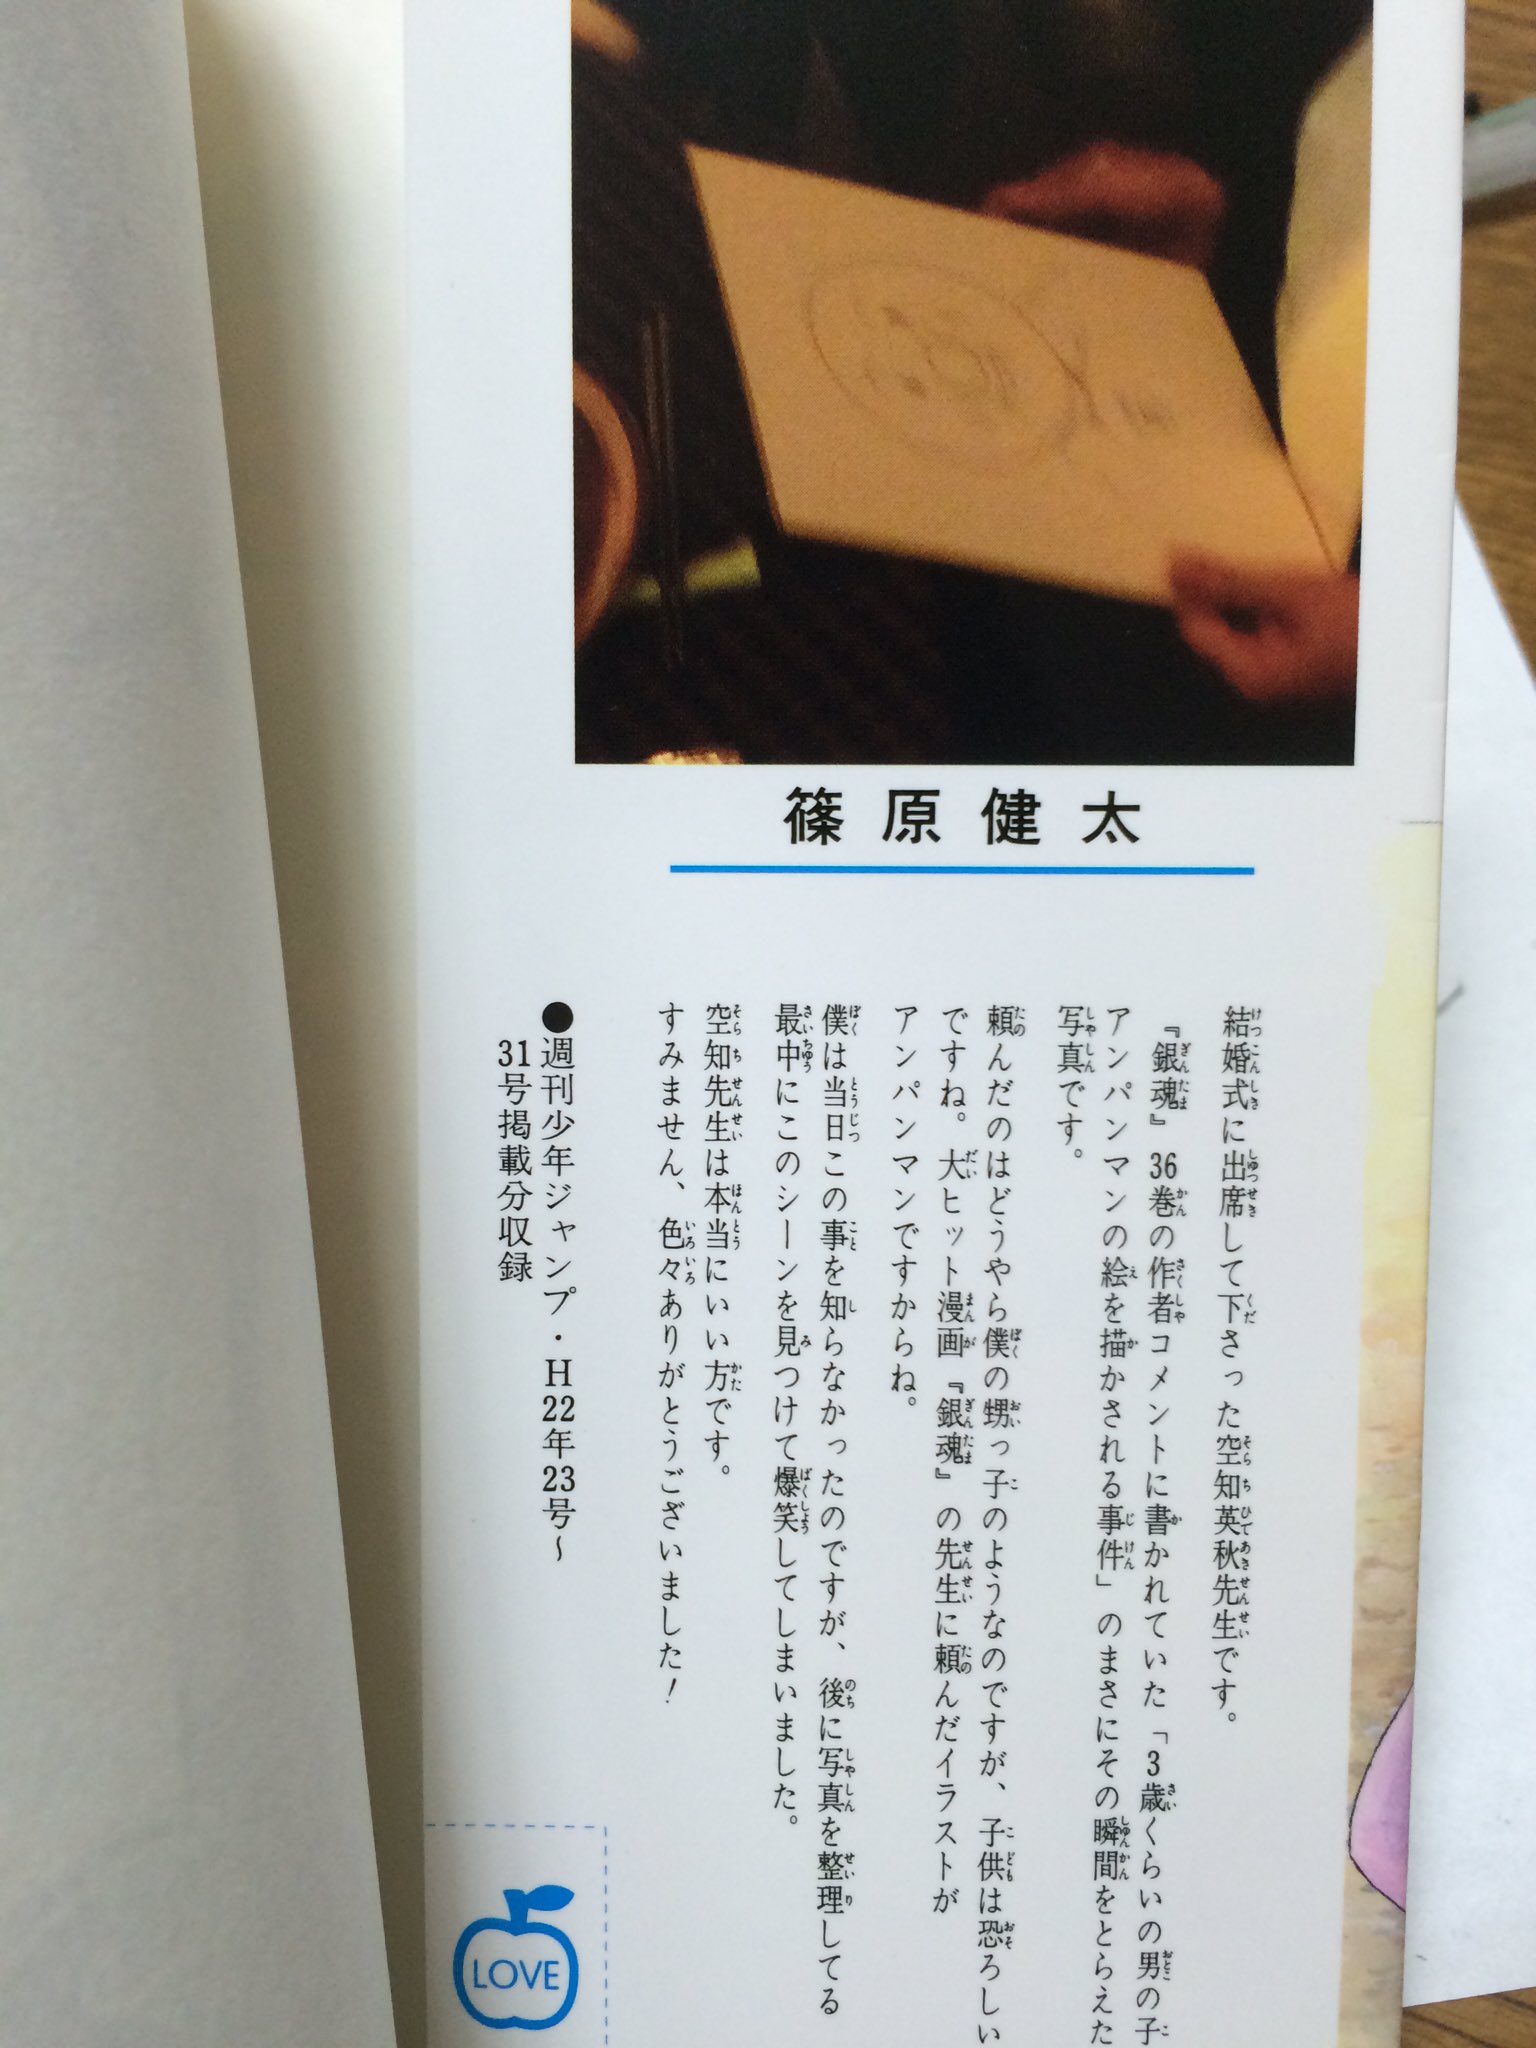 篠原健太
結婚式に出席して下さった空知英秋先生です。
『銀魂』36巻の作者コメントに書かれていた「3歳くらいの男の子
アンパンマンの絵を描かされる事件」のまさにその瞬間をとらえた
写真です。
頼んだのはどうやら僕の甥っ子のようなのですが、子供は恐ろしい
ですね。大ヒット漫画『銀魂』の先生に頼んだイラストが
アンパンマンですからね。
僕は当日この事を知らなかったのですが、後に写真を整理してる
最中にこのシーンを見つけて爆笑してしまいました。
空知先生は本当にいい方です。
すみません、色々ありがとうございました!
●週刊少年ジャンプ・H22年23号〜
31号掲載分収録
LOVE